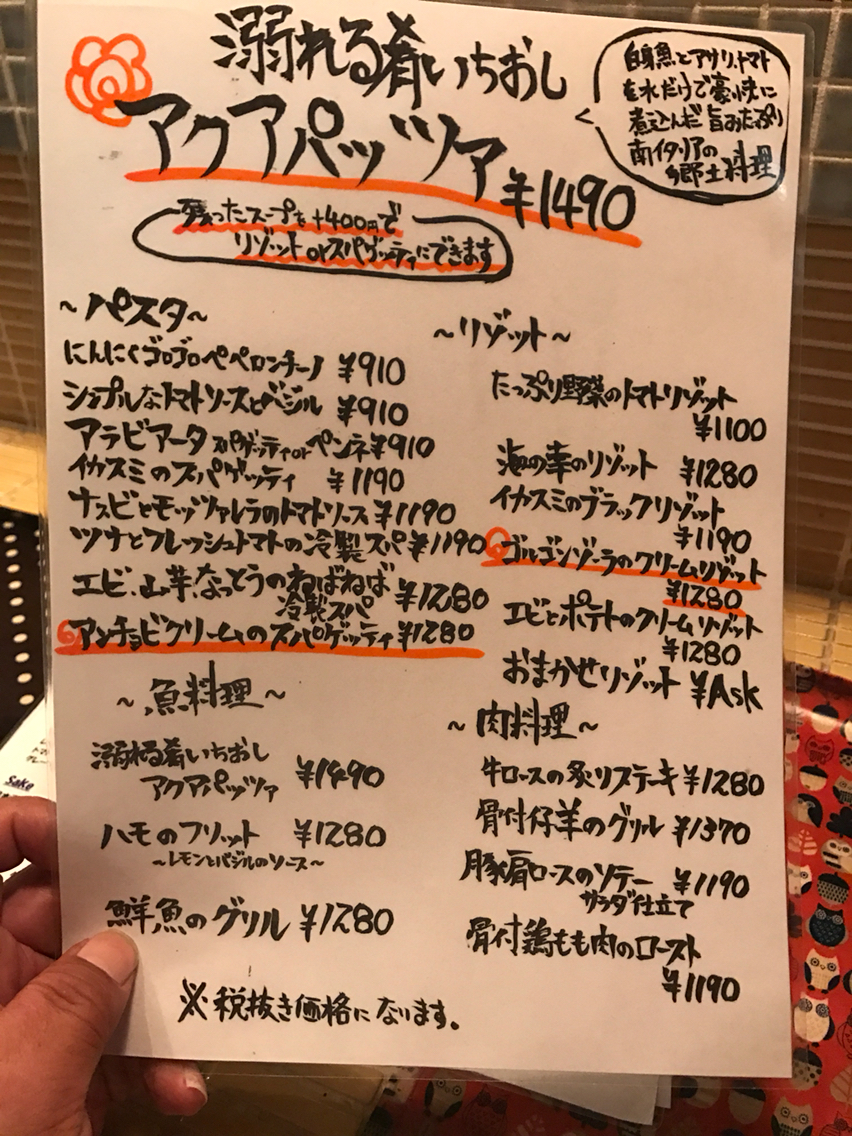 溺れる肴いちおし
アクアパッツァ ¥1490
白身魚とアサリ、トマト
を水だけで豪快に
煮込んだ旨みたっぷり
南イタリアの
郷土料理
残ったスープを+400円で
リゾットorスパゲッティにできます
~パスタ~
にんにくゴロゴロペペロンチーノ ¥910
シンプルなトマトソースとバジル ¥910
アラビアータ スパゲッティorペンネ ¥910
イカスミのスパゲッティ ¥1190
ナスビとモッツァレラのトマトソース ¥1190
ツナとフレッシュトマトの冷製スパ ¥1190
エビ、山芋、なっとうのねばねば
冷製スパ ¥1280
アンチョビクリームのスパゲッティ ¥1280
~リゾット~
たっぷり野菜のトマトリゾット
¥1100
海の幸のリゾット ¥1280
イカスミのブラックリゾット
¥1190
ゴルゴンゾーラのクリームリゾット
¥1280
エビとポテトのクリームリゾット
¥1280
おまかせリゾット ¥Ask
~魚料理~
溺れる肴いちおし
アクアパッツァ ¥1490
ハモのフリット ¥1280
~レモンとバジルのソース~
鮮魚のグリル ¥1280
~肉料理~
牛ロースの炙りステーキ ¥1280
骨付仔羊のグリル ¥1370
豚肩ロースのソテー ¥1190
サラダ仕立て
骨付鶏もも肉のロースト
¥1190
※税抜き価格になります。
Sake